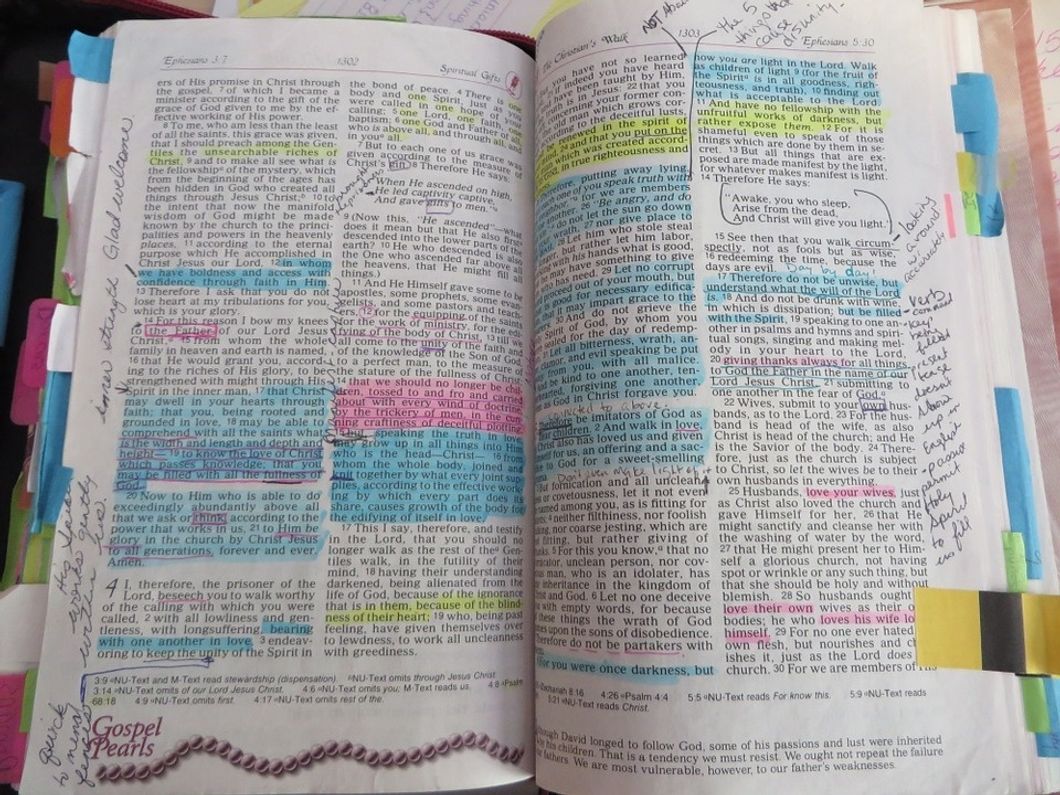 Ephesians 3:7
1302
Spiritual Gifts
ers of His promise in Christ through
the gospel, 7 of which I became a
minister according to the gift of the
grace of God given to me by the ef-
fective working of His power.
8 To me, who am less than the least
of all the saints, this grace was given,
that I should preach among the Gen-
tiles the unsearchable riches of
Christ, 9 and to make all see what is
the fellowship of the mystery, which
from the beginning of the ages has
been hidden in God who created all
things through Jesus Christ; 10 to
the intent that now the manifold
wisdom of God might be made
known by the church to the princi-
palities and powers in the heavenly
places, 11 according to the eternal
purpose which He accomplished in
Christ Jesus our Lord, 12 in whom
we have boldness and access with
confidence through faith in Him.
13 Therefore I ask that you do not
lose heart at my tribulations for you,
which is your glory.
14 For this reason I bow my knees
to the Father of our Lord Jesus
Christ, 15 from whom the whole
family in heaven and earth is named,
16 that He would grant you, accord-
ing to the riches of His glory, to be
strengthened with might through His
Spirit in the inner man, 17 that Christ
may dwell in your hearts through
faith; that you, being rooted and
grounded in love, 18 may be able to
comprehend with all the saints what
is the width and length and depth and
height— 19 to know the love of Christ
which passes knowledge; that you
may be filled with all the fullness of
God.
20 Now to Him who is able to do
exceedingly abundantly above all
that we ask or think, according to the
power that works in us, 21 to Him be
glory in the church by Christ Jesus
to all generations, forever and ever.
Amen.
4 I, therefore, the prisoner of the
Lord, beseech you to walk worthy
of the calling with which you were
called, 2 with all lowliness and gen-
tleness, with longsuffering, bearing
with one another in love, 3 endeav-
oring to keep the unity of the Spirit in
the bond of peace. 4 There is one
body and one Spirit, just as you
were called in one hope of your
calling; 5 one Lord, one faith, one
baptism; 6 one God and Father of all,
who is above all, and through all, and
in you all.
7 But to each one of us grace was
given according to the measure of
Christ's gift. 8 Therefore He says:
"When He ascended on high,
He led captivity captive,
And gave gifts to men."
9 (Now this, "He ascended"—what
does it mean but that He also first
descended into the lower parts of the
earth? 10 He who descended is also
the One who ascended far above all
the heavens, that He might fill all
things.)
11 And He Himself gave some to be
apostles, some prophets, some evan-
gelists, and some pastors and teach-
ers, 12 for the equipping of the saints
for the work of ministry, for the edi-
fying of the body of Christ, 13 till we
all come to the unity of the faith and
of the knowledge of the Son of God,
to a perfect man, to the measure of
the stature of the fullness of Christ;
14 that we should no longer be chil-
dren, tossed to and fro and carried
about with every wind of doctrine,
by the trickery of men, in the cun-
ning craftiness of deceitful plotting,
15 but, speaking the truth in love,
may grow up in all things into Him
who is the head—Christ— 16 from
whom the whole body, joined and
knit together by what every joint sup-
plies, according to the effective work-
ing by which every part does its
share, causes growth of the body for
the edifying of itself in love.
17 This I say, therefore, and testify
in the Lord, that you should no
longer walk as the rest of the Gen-
tiles walk, in the futility of their
mind, 18 having their understanding
darkened, being alienated from the
life of God, because of the ignorance
that is in them, because of the blind-
ness of their heart; 19 who, being past
feeling, have given themselves over
to lewdness, to work all uncleanness
with greediness.
3:9 NU-Text and M-Text read stewardship (dispensation). NU-Text omits through Jesus Christ.
3:14 NU-Text omits of our Lord Jesus Christ. 4:6 NU-Text omits you; M-Text reads us. 4:8 Psalm
68:18 4:9 NU-Text omits first. 4:17 NU-Text omits rest of the.
Gospel
Pearls
Glad welcome
inner strength
His Spirit
works gently
within his
The Christian's Walk
1303
Ephesians 5:30
NOT
the 5
things that
cause
disunity.
you have not so learned
if indeed you have heard
have been taught by Him,
is in Jesus: 22 that you
concerning your former con-
which grows cor-
ding to the deceitful lusts,
be renewed in the spirit of
mind, 24 and that you put on the
which was created accord-
God, in true righteousness and
Therefore, putting away lying,
each one of you speak truth with
for we are members
another. 26 "Be angry, and do
do not let the sun go down
wrath, 27 nor give place to
28 Let him who stole steal
longer, but rather let him labor,
with his hands what is good,
he may have something to give
who has need. 29 Let no corrupt
proceed out of your mouth, but
is good for necessary edifica-
that it may impart grace to the
30 And do not grieve the
Spirit of God, by whom you
sealed for the day of redemp-
31 Let all bitterness, wrath, an-
clamor, and evil speaking be put
from you, with all malice.
be kind to one another, ten-
hearted, forgiving one another,
as God in Christ forgave you.
Therefore be imitators of God as
dear children. 2 And walk in love,
Christ also has loved us and given
for us, an offering and a sac-
to God for a sweet-smelling
But fornication and all unclean-
or covetousness, let it not even
named among you, as is fitting for
4 neither filthiness, nor foolish
nor coarse jesting, which are
fitting, but rather giving of
thanks. 5 For this you know, that no
fornicator, unclean person, nor cov-
man, who is an idolater, has
inheritance in the kingdom of
Christ and God. 6 Let no one deceive
with empty words, for because
these things the wrath of God
comes upon the sons of disobedience.
Therefore do not be partakers with
For you were once darkness, but
now you are light in the Lord. Walk
as children of light 9 (for the fruit of
the Spirit is in all goodness, right-
eousness, and truth), 10 finding out
what is acceptable to the Lord.
11 And have no fellowship with the
unfruitful works of darkness, but
rather expose them. 12 For it is
shameful even to speak of those
things which are done by them in se-
cret. 13 But all things that are ex-
posed are made manifest by the light,
for whatever makes manifest is light.
14 Therefore He says:
"Awake, you who sleep,
Arise from the dead,
And Christ will give you light."
15 See then that you walk circum-
spectly, not as fools but as wise,
16 redeeming the time, because the
days are evil. Day by day!
17 Therefore do not be unwise, but
understand what the will of the Lord
is. 18 And do not be drunk with wine,
in which is dissipation; but be filled
with the Spirit, 19 speaking to one an-
other in psalms and hymns and spiri-
tual songs, singing and making mel-
ody in your heart to the Lord,
20 giving thanks always for all things
to God the Father in the name of our
Lord Jesus Christ, 21 submitting to
one another in the fear of God.
22 Wives, submit to your own hus-
bands, as to the Lord. 23 For the hus-
band is head of the wife, as also
Christ is head of the church; and He
is the Savior of the body. 24 There-
fore, just as the church is subject
to Christ, so let the wives be to their
own husbands in everything.
25 Husbands, love your wives, just
as Christ also loved the church and
gave Himself for her, 26 that He
might sanctify and cleanse her with
the washing of water by the word,
27 that He might present her to Him-
self a glorious church, not having
spot or wrinkle or any such thing, but
that she should be holy and without
blemish. 28 So husbands ought
love their own wives as their o
bodies; he who loves his wife lo
himself. 29 For no one ever hated
own flesh, but nourishes and ch
ishes it, just as the Lord does
church. 30 For we are members of
looking
around
verb
- command
- key
being
filled
present
tense
doesn't
show
up in
English
- passive
permit
Holy
Spirit
to
us fill
Zechariah 8:16 4:26 Psalm 4:4 5:5 NU-Text reads For know this. 5:9 NU-Text reads
5:21 NU-Text reads Christ.
though David longed to follow God, some of his passions and lust were inherited
his children. That is a tendency we must resist. We ought not repeat the failure
fathers. We are most vulnerable, however, to our father's weaknesses.